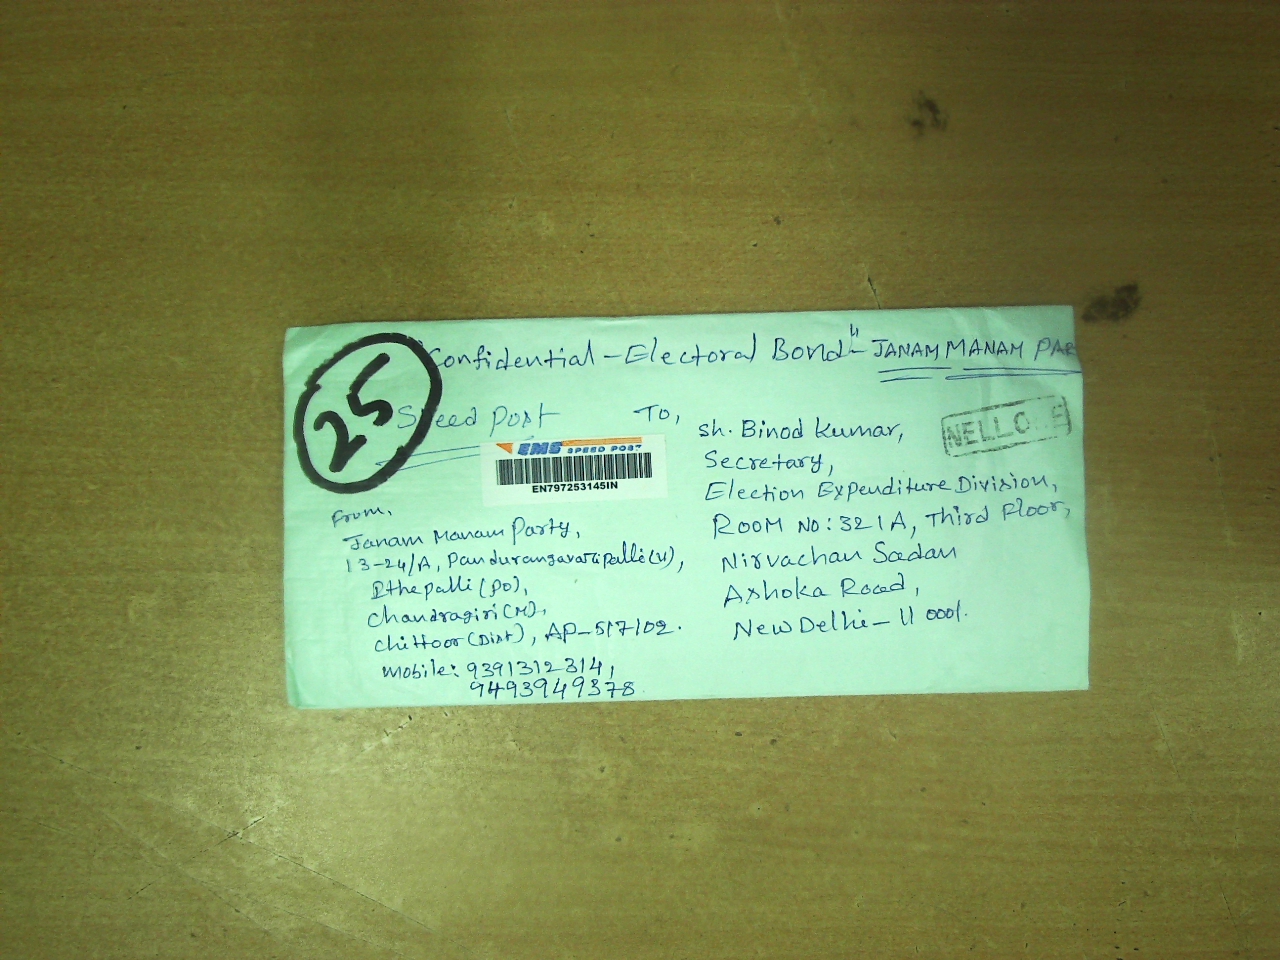 "Confidential - Electoral Bond" - JANAM MANAM PAR
25
Speed Post
EMS SPEED POST
EN797253145IN
NELLORE
To,
sh. Binod Kumar,
Secretary,
Election Expenditure Division,
ROOM NO: 321A, Third Floor,
Nirvachan Sadan
Ashoka Road,
New Delhi - 110001.
From,
Janam Manam Party,
13-24/A, (V),
(PO),
Chandragiri(M),
Chittoor(Dist), AP-517102.
Mobile: 9391312314,
9493949378.